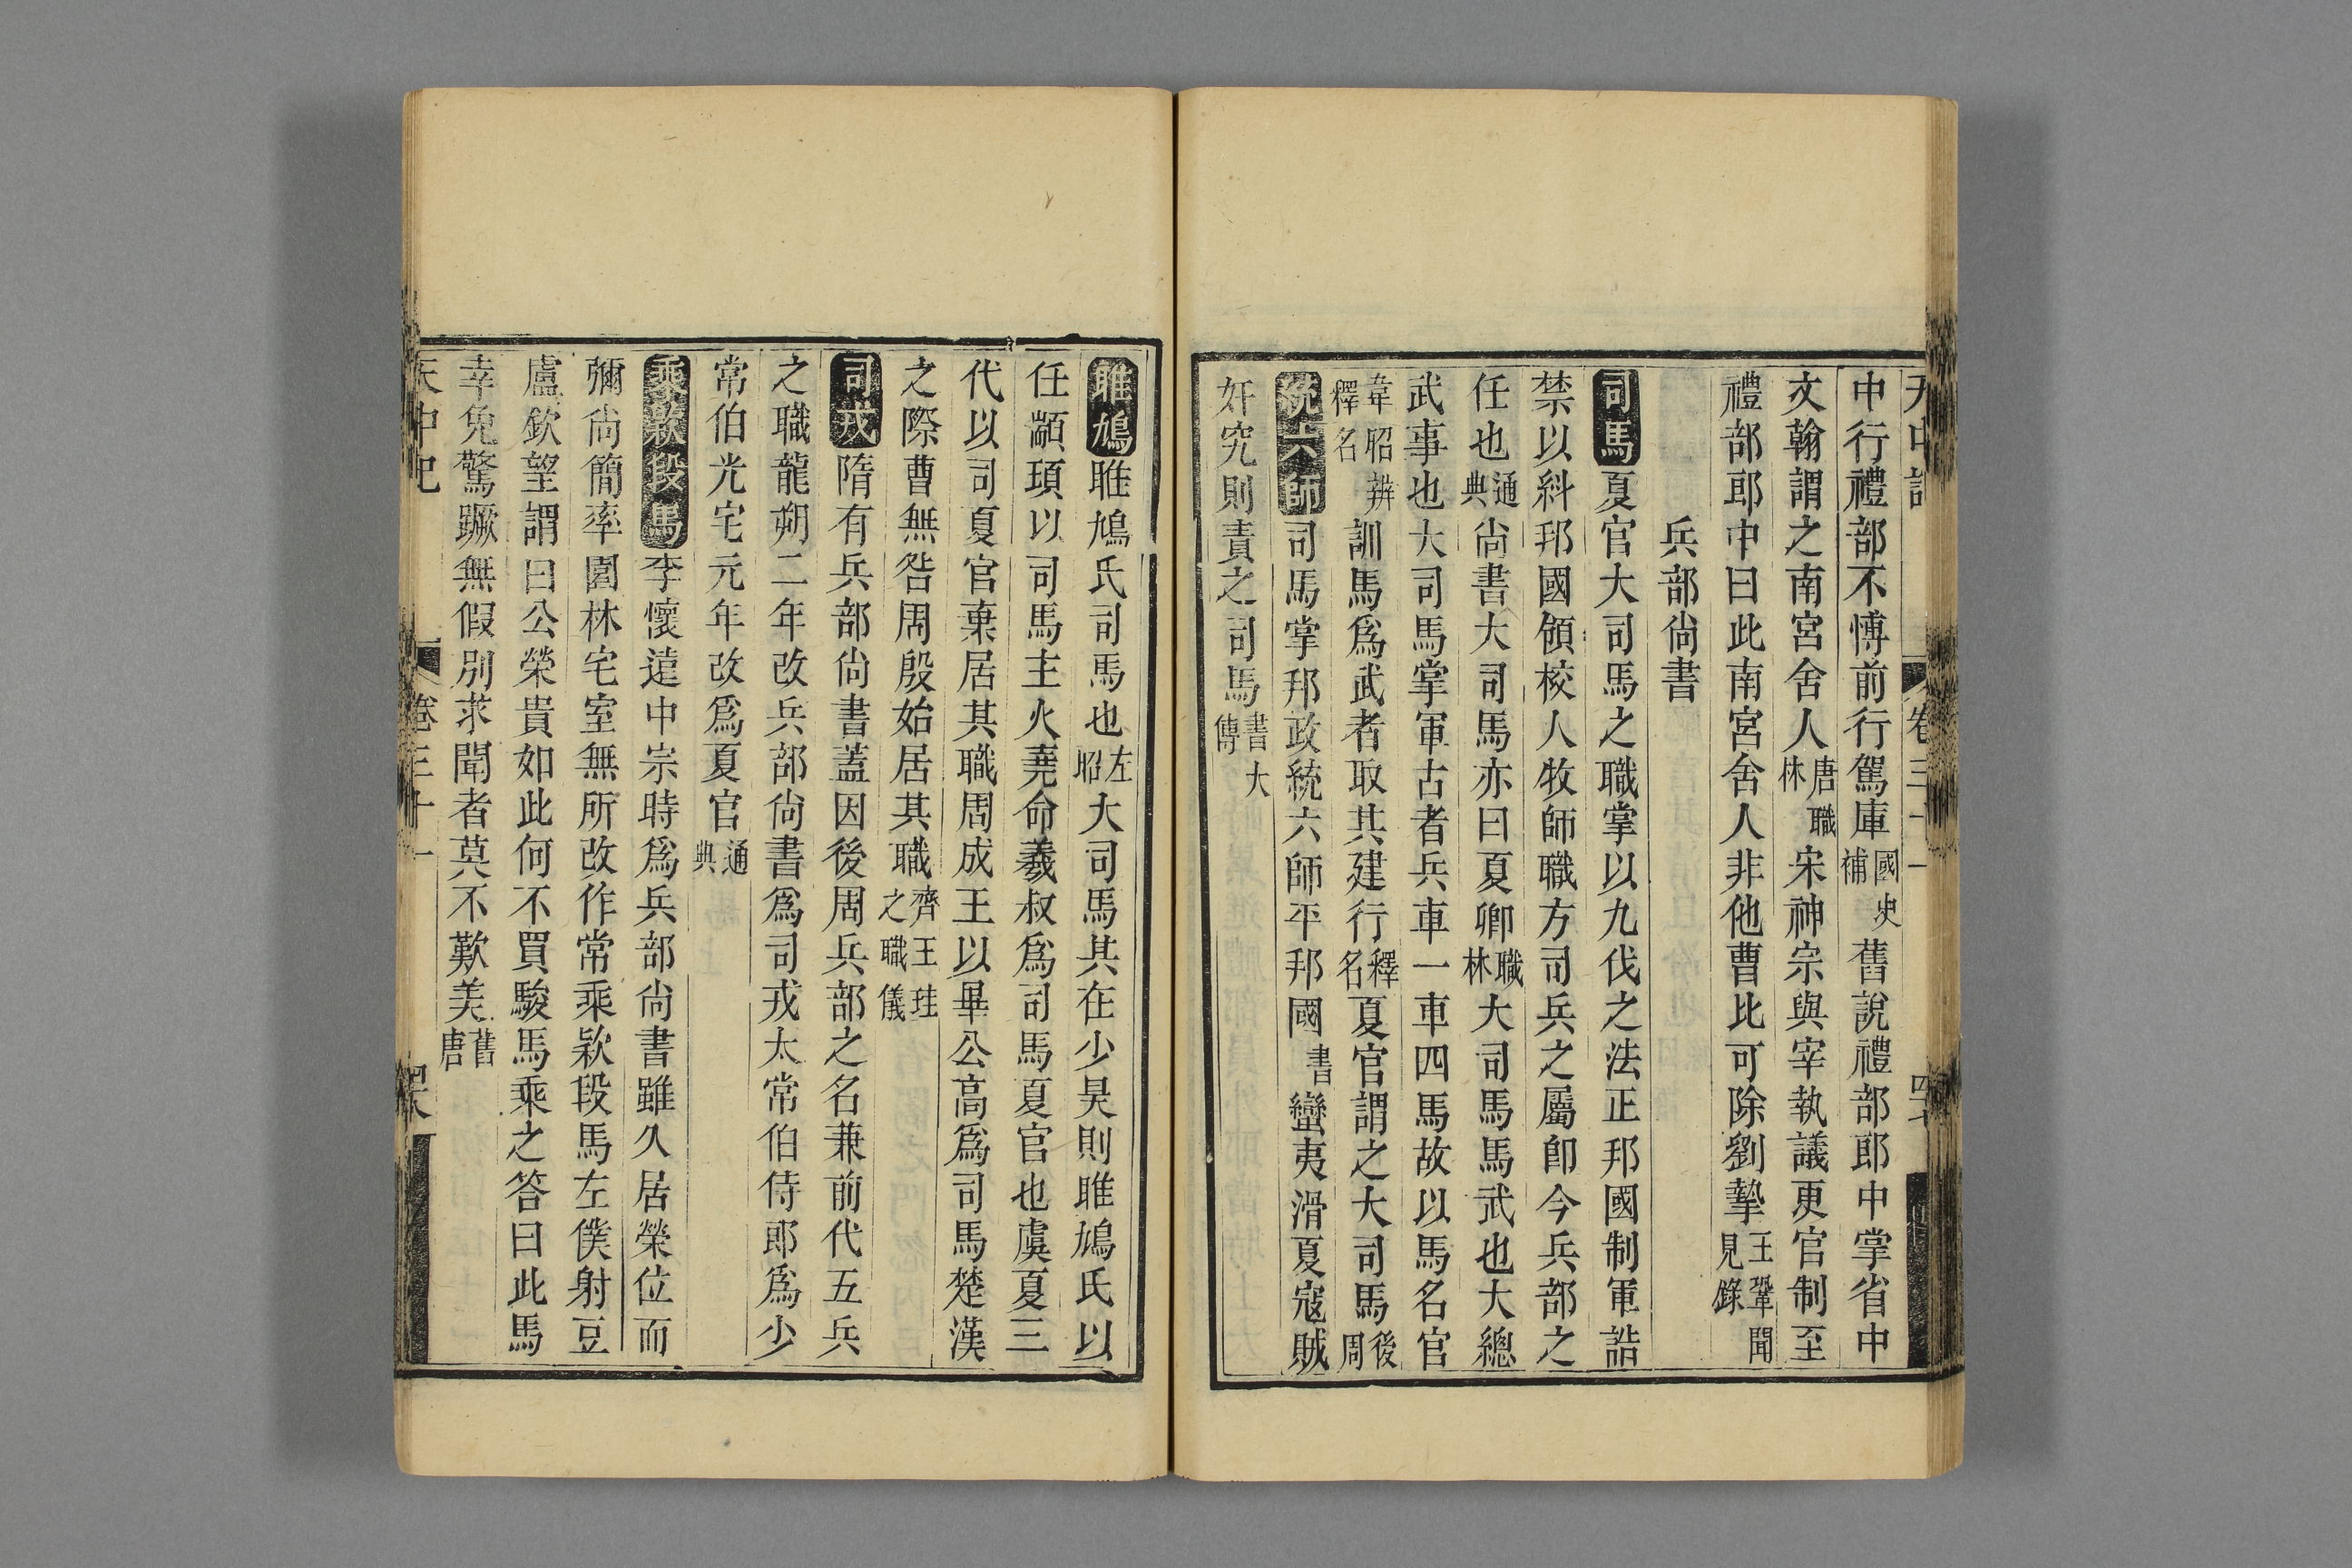 中行禮部不愽前行駕庫國史補舊說禮部郎中掌省中
文翰謂之南宮舍人唐職林宋神宗與宰執議更官制至
禮部郎中曰此南宮舍人非他曹比可除劉摯王鞏聞見錄
兵部尚書
司馬夏官大司馬之職掌以九伐之法正邦國制軍詰
禁以糾邦國領校人牧師職方司兵之屬卽今兵部之
任也通典尚書大司馬亦曰夏卿職林大司馬馬武也大總
武事也大司馬掌軍古者兵車一車四馬故以馬名官
韋昭辨釋名訓馬爲武者取其建行釋名夏官謂之大司馬後周
統六師司馬掌邦政統六師平邦國書蠻夷滑夏寇賊
奸宄則責之司馬書大傳
鴡鳩鴡鳩氏司馬也左昭大司馬其在少昊則鴡鳩氏以
任顓頊以司馬主火堯命羲叔爲司馬夏官也虞夏三
代以司夏官棄居其職周成王以畢公高爲司馬楚漢
之際曹無咎周殷始居其職齊王珪之職儀
司戎隋有兵部尚書蓋因後周兵部之名兼前代五兵
之職龍朔二年改兵部尚書爲司戎太常伯侍郎爲少
常伯光宅元年改爲夏官通典
乘欵段馬李懷遠中宗時爲兵部尚書雖久居榮位而
彌尚簡率園林宅室無所改作常乘欵段馬左僕射豆
盧欽望謂曰公榮貴如此何不買駿馬乘之答曰此馬
幸免驚蹶無假別求聞者莫不歎美舊唐
天中記 卷三十一